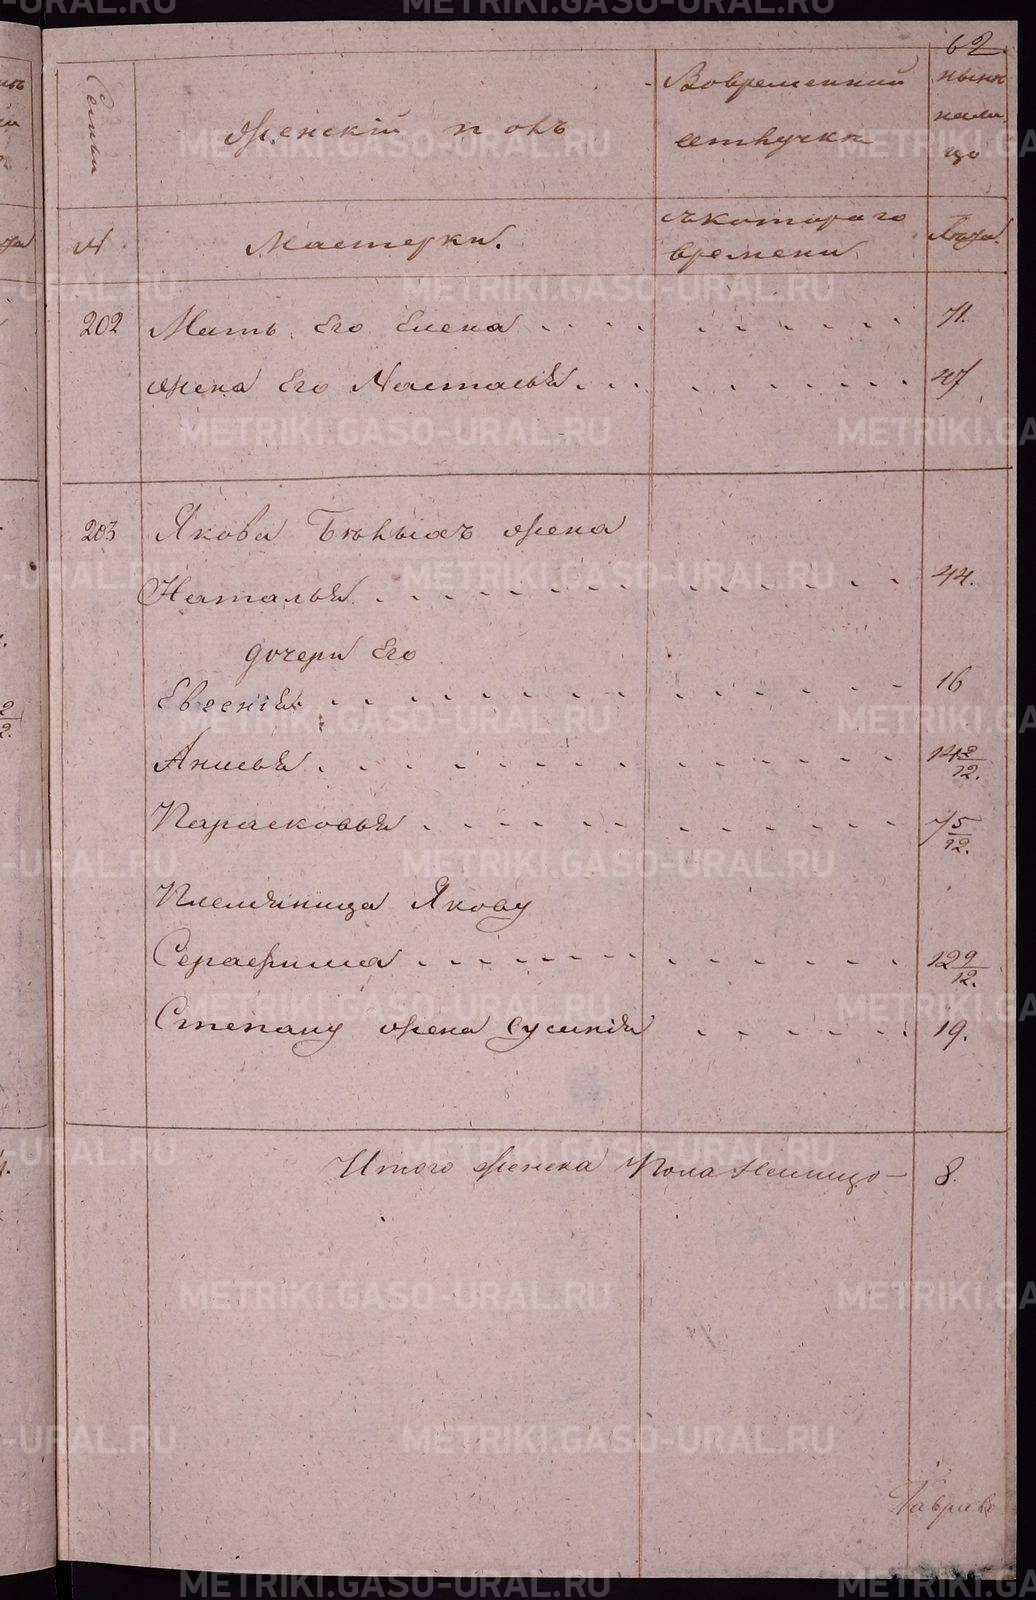 62.
Семьи
Женскій полъ
Вовременной
отлучкѣ
нынѣ
нали
цо
№
Мастерки.
съкотораго
времени
Лѣта.
202
Мать Его Елена
71.
жена Его Настасья
47
203
Якова Бѣлыхъ жена
Наталья
44.
дочери Его
Евгенія
16
Анисья
14 2/12.
Парасковья
7 5/12.
Племяница Якову
Серафима
12 9/12.
Степану жена
19.
Итого женска Пола Налицо
8.
Гаврило
METRIKI.GASO-URAL.RU